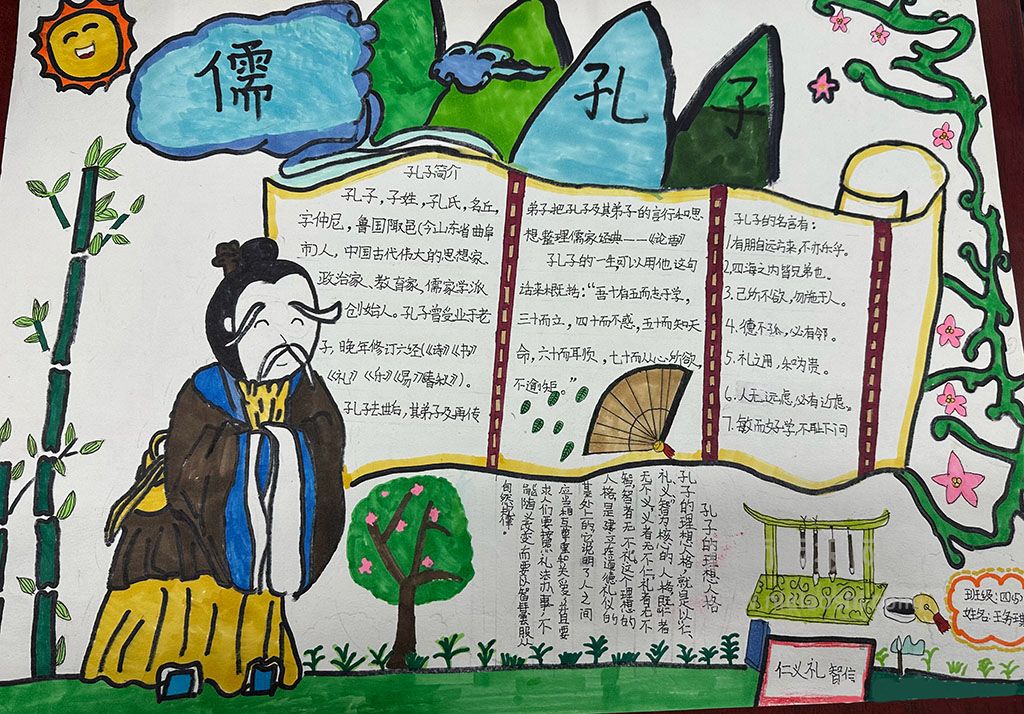 儒
孔子
孔子简介
孔子，子姓，孔氏，名丘，
字仲尼，鲁国陬邑（今山东省曲阜
市）人，中国古代伟大的思想家、
政治家、教育家、儒家学派
创始人。孔子曾受业于老
子，晚年修订六经（《诗》《书》
《礼》《乐》《易》《春秋》）。
孔子去世后，其弟子及再传
弟子把孔子及其弟子的言行和思
想，整理儒家经典——《论语》
孔子的一生可以用他这句
话来概括：“吾十有五而志于学，
三十而立，四十而不惑，五十而知天
命，六十而耳顺，七十而从心所欲，
不逾矩。”
孔子的名言有：
1.有朋自远方来，不亦乐乎。
2.四海之内皆兄弟也。
3.己所不欲，勿施于人。
4.德不孤，必有邻。
5.礼之用，和为贵。
6.人无远虑，必有近虑。
7.敏而好学，不耻下问
孔子的理想人格
孔子的理想人格，就是以“仁、
礼、义”智为核心的人格既“仁者
无不义，义者无不仁，礼者无不
智，智者无不礼”这个理想的
人格是建立在道德礼仪的
基处上的，它说明了人之间
应当相互尊重和关爱，并且要
求人们要按照“礼法办事，不
能随义改变，而要以智慧服从
自然规律。
班级：四(5)
姓名：王务琪
仁义礼智信